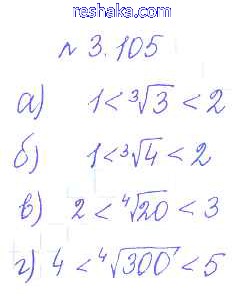 reshaka.com
№ 3.105
а) 1 < ∛3 < 2
б) 1 < ∛4 < 2
в) 2 < ∜20 < 3
г) 4 < ∜300 < 5